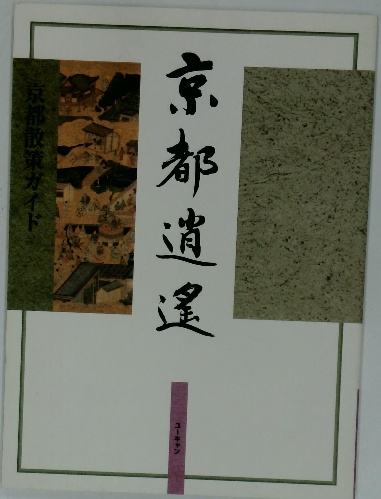 京都逍遙
京都散策ガイド
ユーキャン